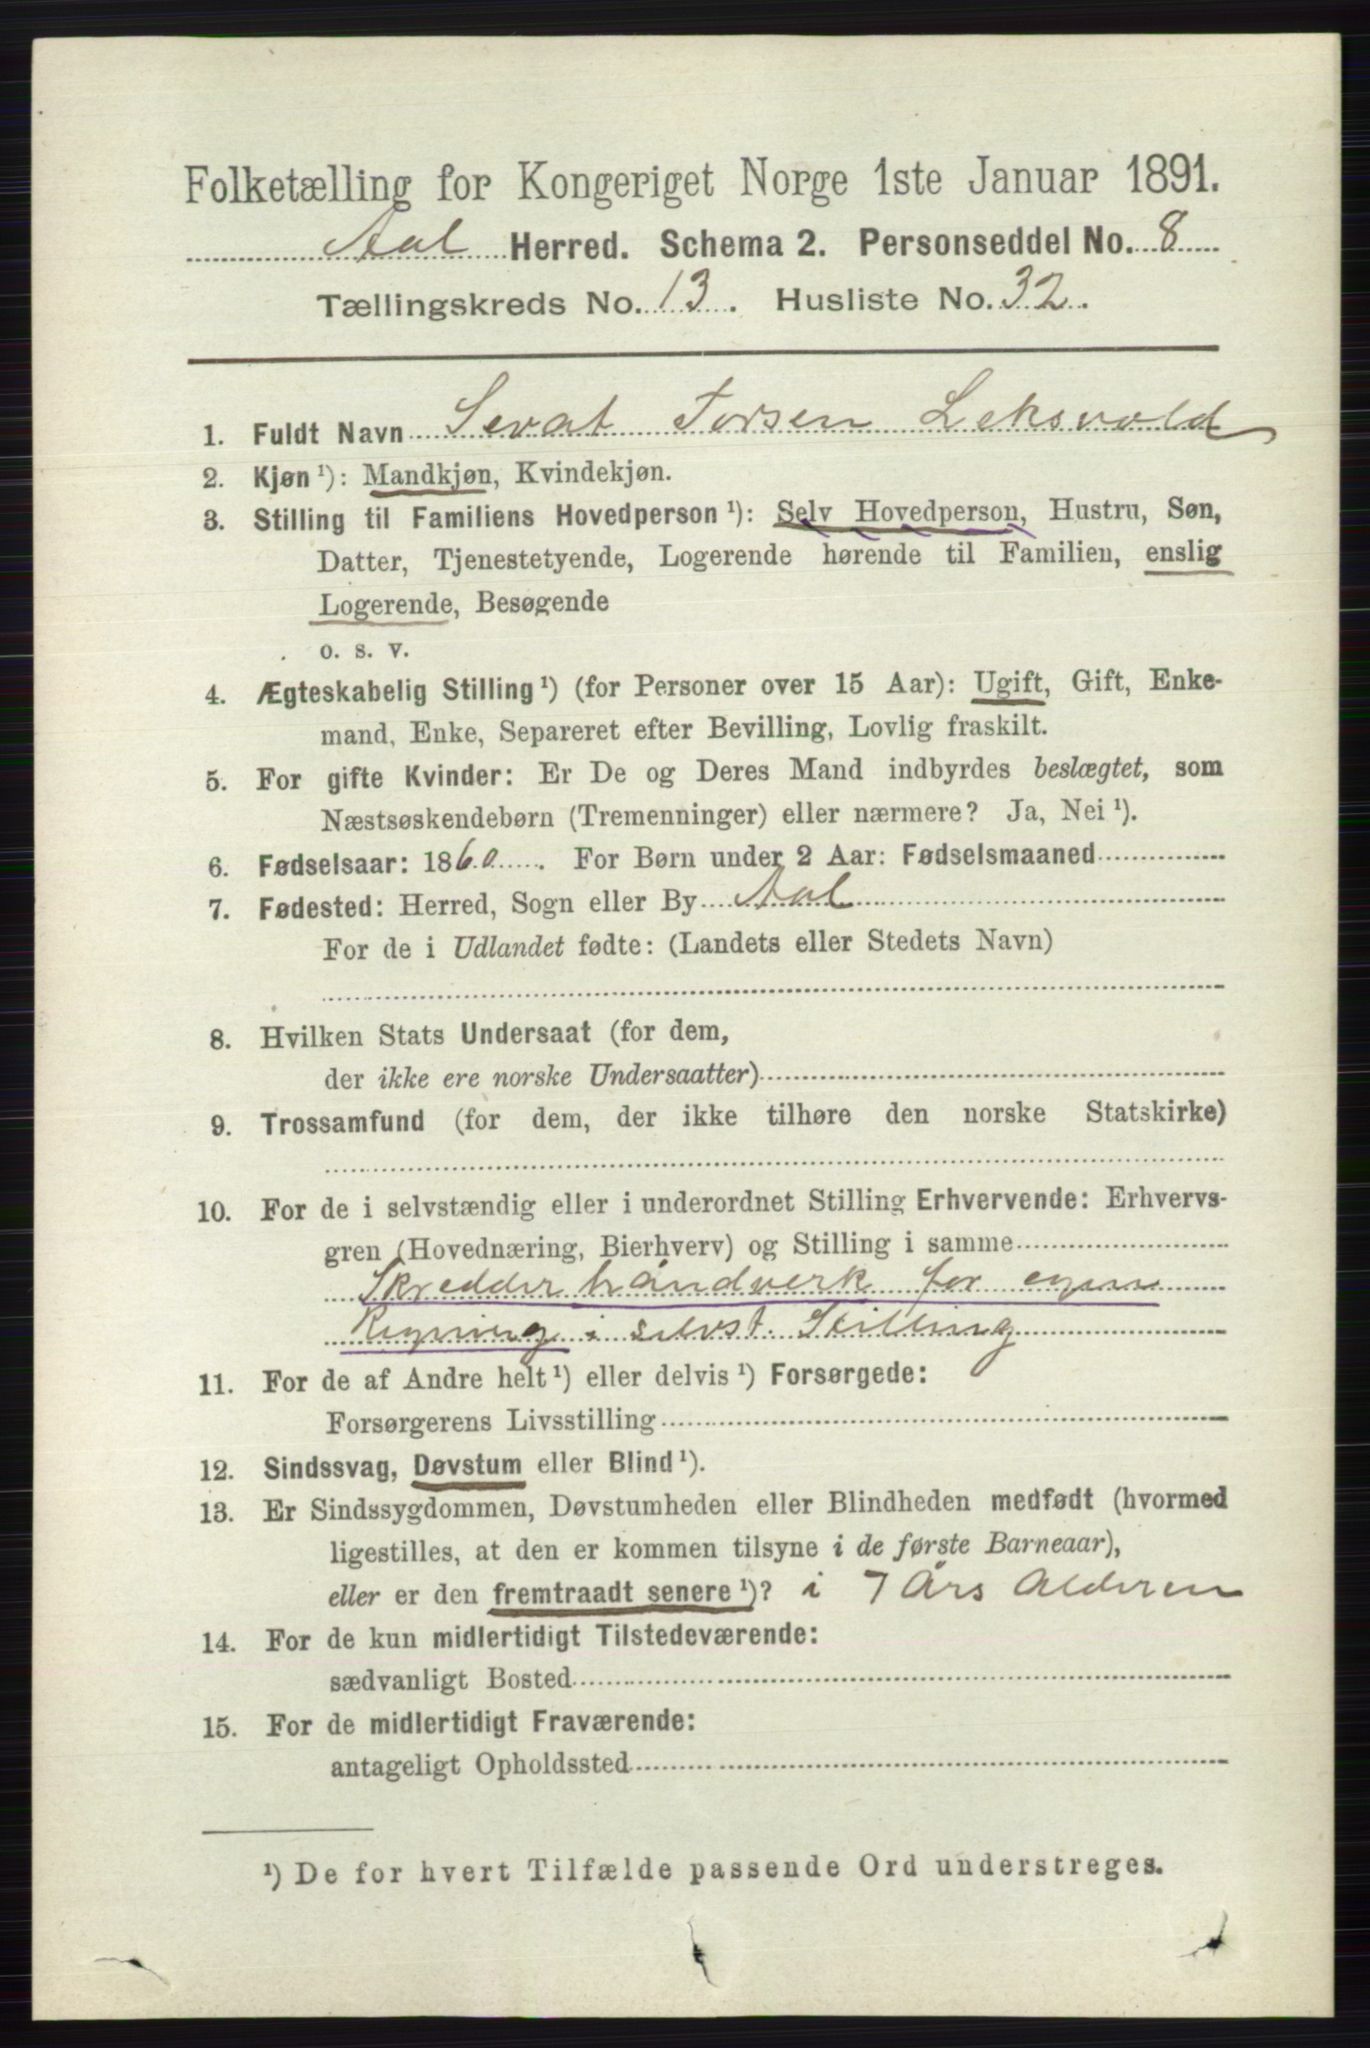 Folketælling for Kongeriget Norge 1ste Januar 1891.
Aal Herred. Schema 2. Personseddel No. 8
Tællingskreds No. 13. Husliste No. 32.
1. Fuldt Navn Sevat Torsen Leksvold
2. Kjøn ¹): Mandkjøn, Kvindekjøn.
3. Stilling til Familiens Hovedperson ¹): Selv Hovedperson, Hustru, Søn,
Datter, Tjenestetyende, Logerende hørende til Familien, enslig
Logerende, Besøgende
o. s. v.
4. Ægteskabelig Stilling ¹) (for Personer over 15 Aar): Ugift, Gift, Enke-
mand, Enke, Separeret efter Bevilling, Lovlig fraskilt.
5. For gifte Kvinder: Er De og Deres Mand indbyrdes beslægtet, som
Næstsøskendebørn (Tremenninger) eller nærmere? Ja, Nei ¹).
6. Fødselsaar: 1860. For Børn under 2 Aar: Fødselsmaaned
7. Fødested: Herred, Sogn eller By Aal
For de i Udlandet fødte: (Landets eller Stedets Navn)
8. Hvilken Stats Undersaat (for dem,
der ikke ere norske Undersaatter)
9. Trossamfund (for dem, der ikke tilhøre den norske Statskirke)
10. For de i selvstændig eller i underordnet Stilling Erhvervende: Erhvervs-
gren (Hovednæring, Bierhverv) og Stilling i samme
Skredder håndverk for egen
Regning i selvst. Stilling
11. For de af Andre helt ¹) eller delvis ¹) Forsørgede:
Forsørgerens Livsstilling
12. Sindssvag, Døvstum eller Blind ¹).
13. Er Sindssygdommen, Døvstumheden eller Blindheden medfødt (hvormed
ligestilles, at den er kommen tilsyne i de første Barneaar),
eller er den fremtraadt senere ¹)? i 7 Års Alderen
14. For de kun midlertidigt Tilstedeværende:
sædvanligt Bosted
15. For de midlertidigt Fraværende:
antageligt Opholdssted
¹) De for hvert Tilfælde passende Ord understreges.